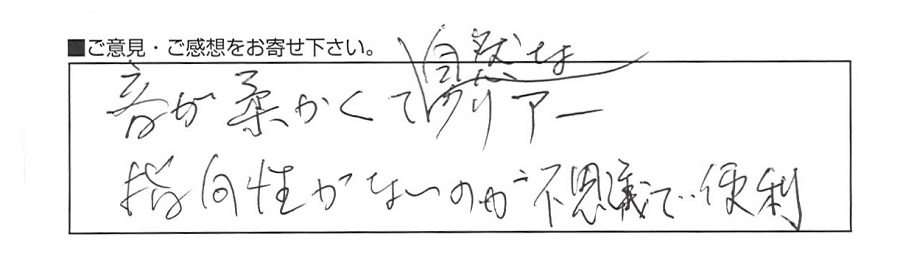 ■ご意見・ご感想をお寄せ下さい。
音が柔かくて自然なクリアー
指向性がないのが不思議で便利